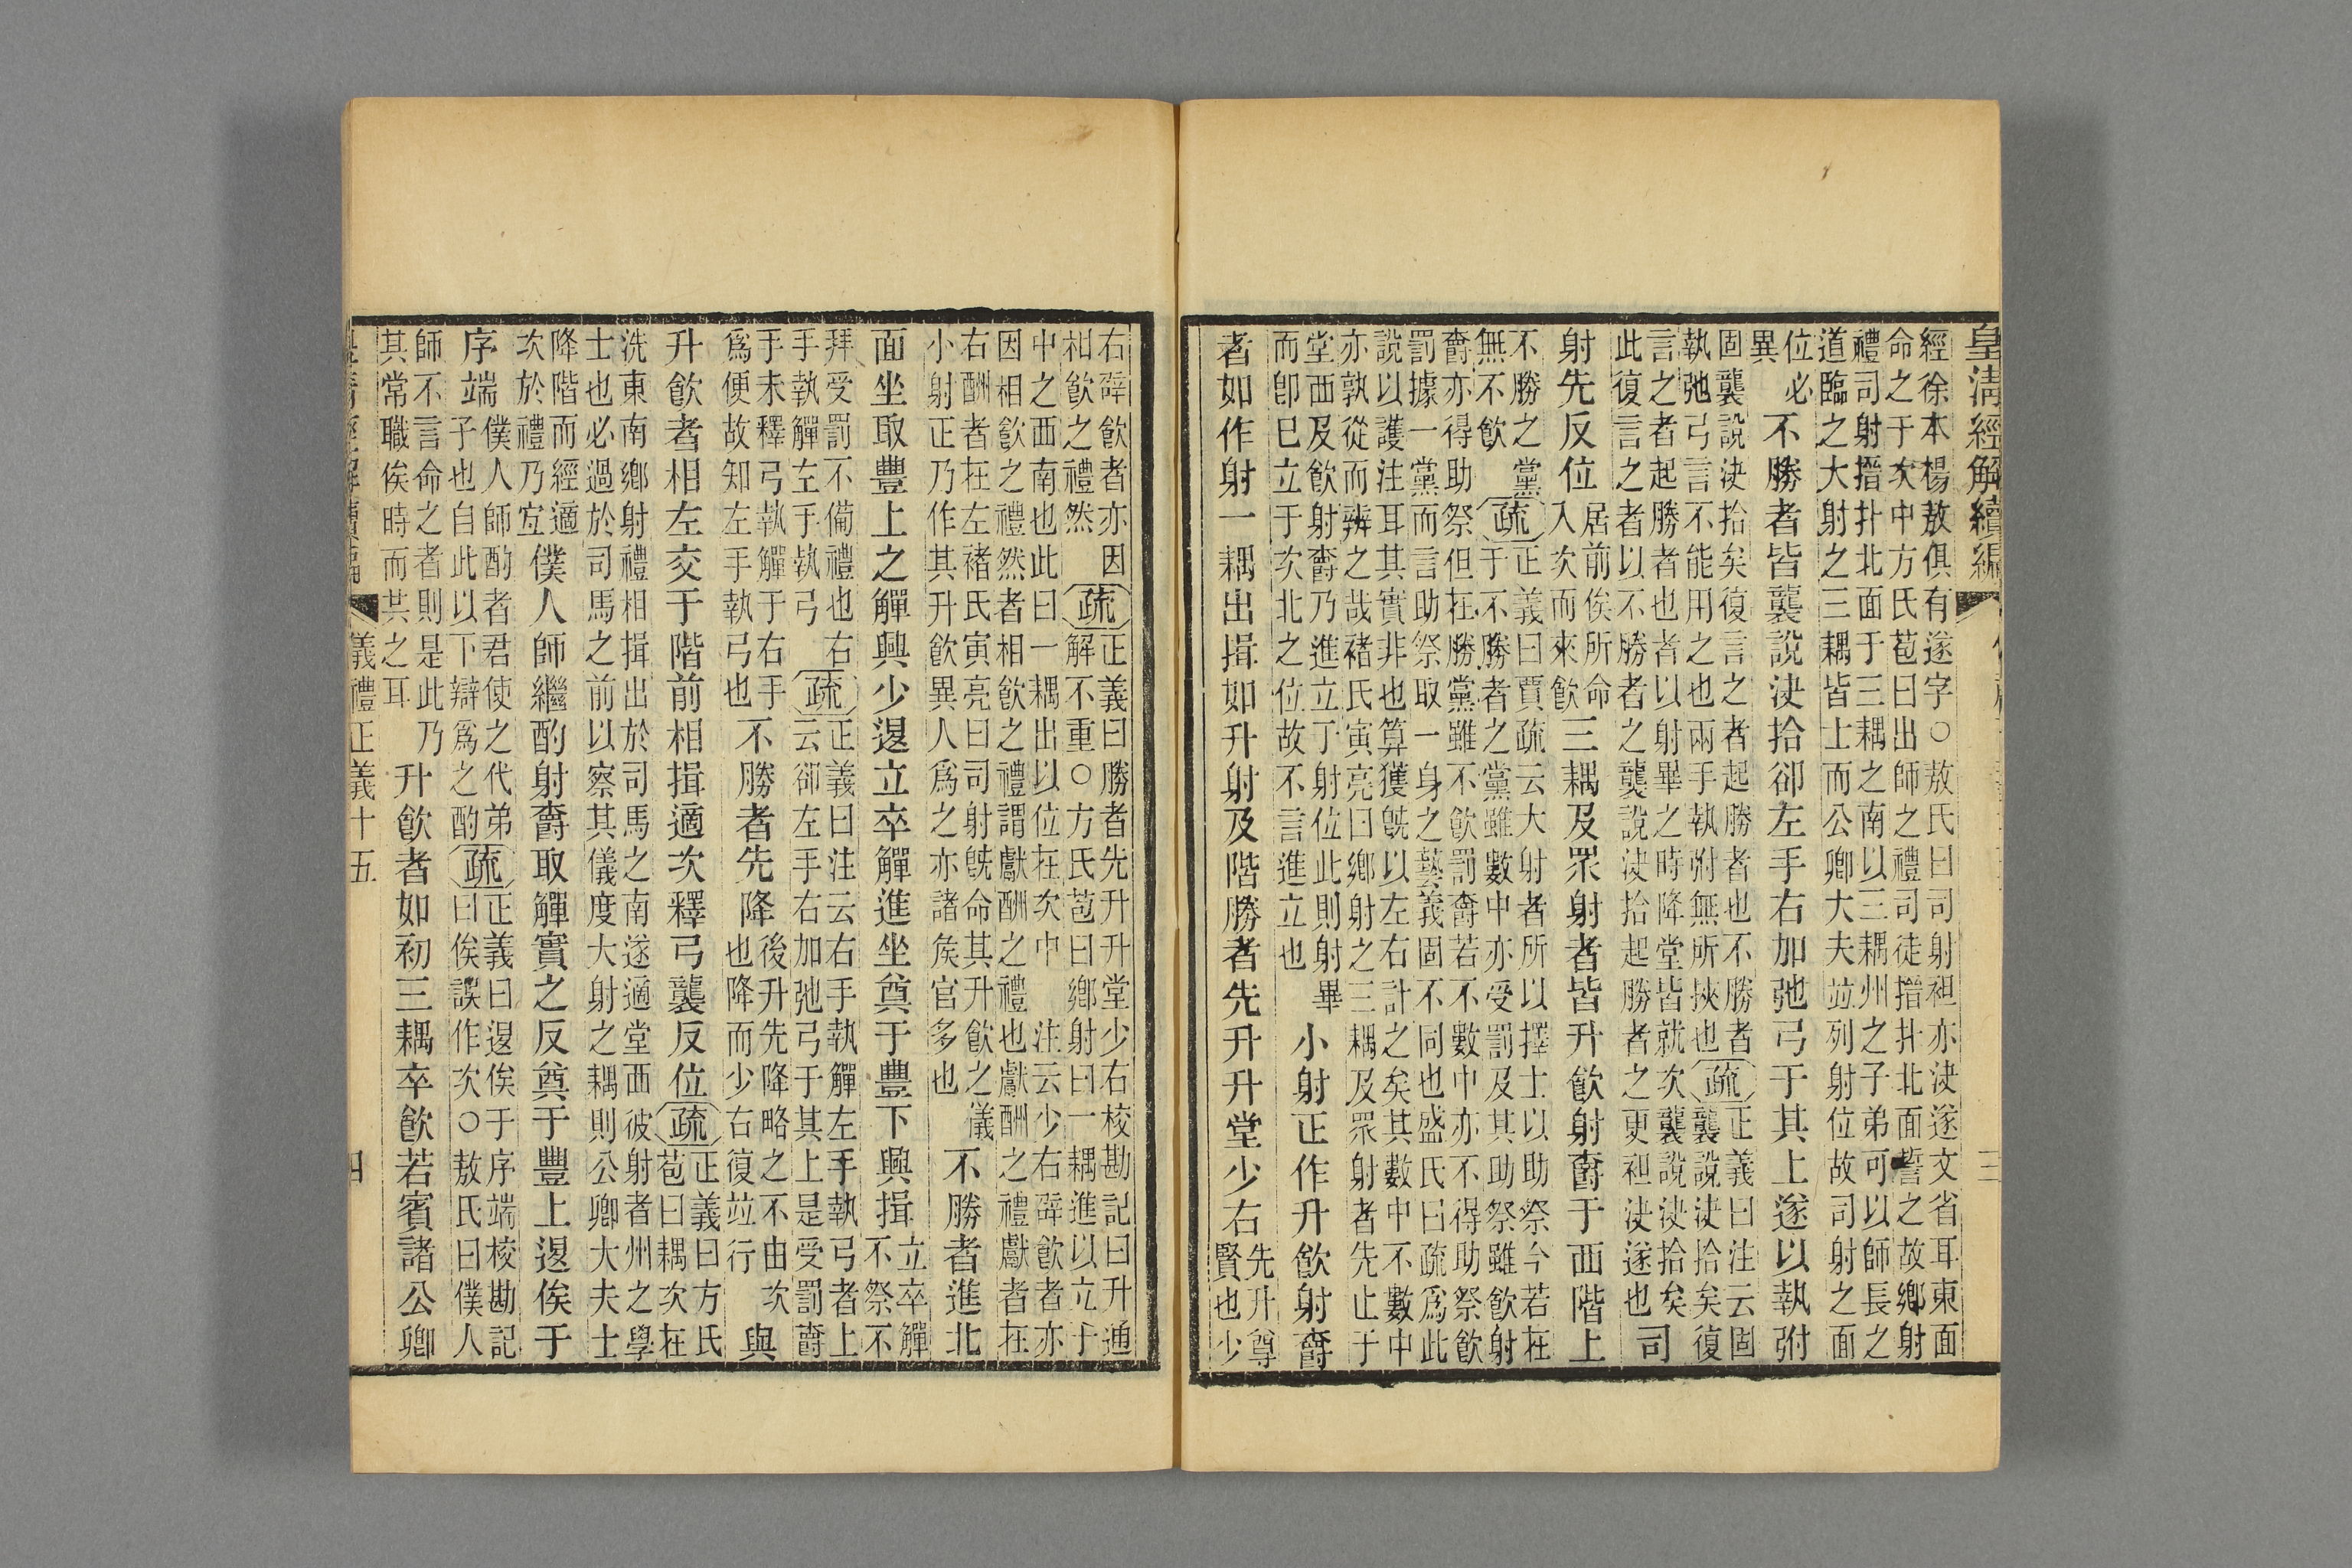 皇淸經解續編
三
經徐本楊敖俱有遂字○敖氏曰司射袒亦決遂文省耳東面
命之于次中方氏苞曰出師之禮司徒搢扑北面誓之故鄉射
禮司射搢扑北面于三耦之南以三耦州之子弟可以師長之
道臨之大射之三耦皆士而公卿大夫竝列射位故司射之面
位必
異
不勝者皆襲說決拾卻左手右加弛弓于其上遂以執弣
固襲說決拾矣復言之者起勝者也不勝者
執弛弓言不能用之也兩手執弣無所挾也
疏
正義曰注云固
襲說決拾矣復
言之者起勝者也者以射畢之時降堂皆就次襲說決拾矣
此復言之者以不勝者之襲說決拾起勝者之更袒決遂也
司
射先反位
居前俟所命
入次而來飮
三耦及眾射者皆升飮射爵于西階上
不勝之黨
無不飮
疏
正義曰賈疏云大射者所以擇士以助祭今若在
于不勝者之黨雖數中亦受罰及其助祭雖飮射
爵亦得助祭但在勝黨雖不飮罰爵若不數中亦不得助祭飮
罰據一黨而言助祭取一身之藝義固不同也盛氏曰疏爲此
說以護注耳其實非也算獲旣以左右計之矣其數中不數中
亦孰從而辨之哉褚氏寅亮曰鄉射之三耦及眾射者先止于
堂西及飮射爵乃進立了射位此則射畢
而卽巳立于次北之位故不言進立也
小射正作升飮射爵
者如作射一耦出揖如升射及階勝者先升升堂少右
先升尊
賢也少
右辟飮者亦因
相飮之禮然
疏
正義曰勝者先升升堂少右校勘記曰升通
解不重○方氏苞曰鄉射曰一耦進以立于
中之西南也此曰一耦出以位在次中 注云少右辟飮者亦
因相飮之禮然者相飮之禮謂獻酬之禮也獻酬之禮獻者在
右酬者在左褚氏寅亮曰司射旣命其升飮之儀
小射正乃作其升飮異人爲之亦諸侯官多也
不勝者進北
面坐取豐上之觶興少退立卒觶進坐奠于豐下興揖
立卒觶
不祭不
拜受罰不備禮也右
手執觶左手執弓
疏
正義曰注云右手執觶左手執弓者上
云卻左手右加弛弓于其上是受罰爵
手未釋弓執觶于右手
爲便故知左手執弓也
不勝者先降
後升先降略之不由次
也降而少右復竝行
與
升飮者相左交于階前相揖適次釋弓襲反位
疏
正義曰方氏
苞曰耦次在
洗東南鄉射禮相揖出於司馬之南遂適堂西彼射者州之學
士也必過於司馬之前以察其儀度大射之耦則公卿大夫士
降階而經適
次於禮乃宜
僕人師繼酌射爵取觶實之反奠于豐上退俟于
序端
僕人師酌者君使之代弟
子也自此以下辯爲之酌
疏
正義曰退俟于序端校勘記
曰俟誤作次○敖氏曰僕人
師不言命之者則是此乃
其常職俟時而共之耳
升飮者如初三耦卒飮若賓諸公卿
儀禮正義十五
四